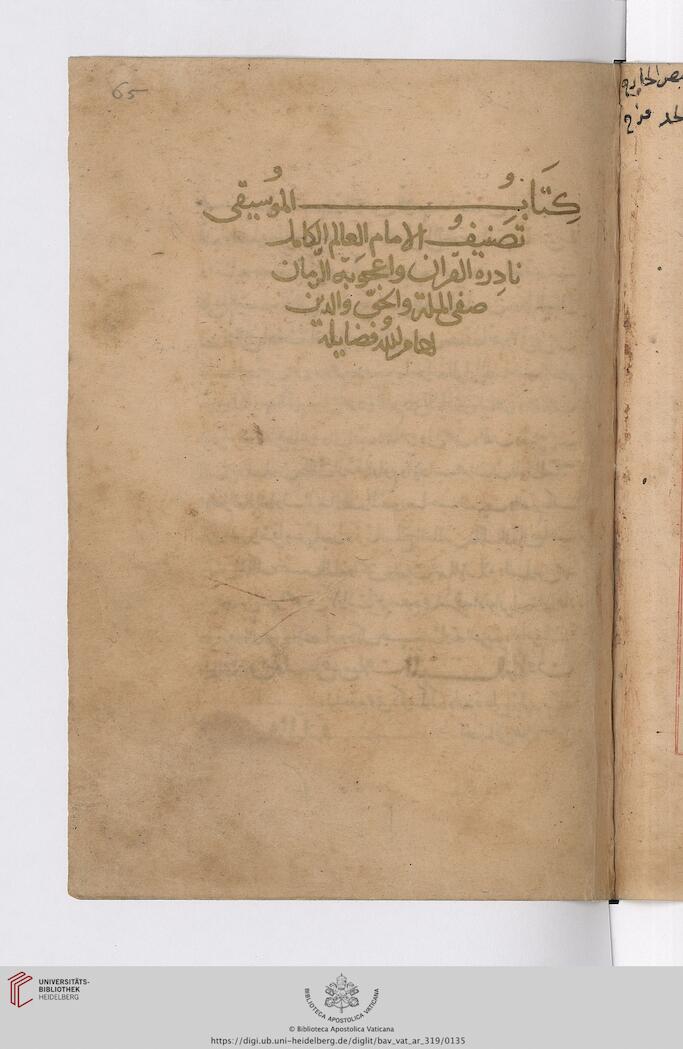 65
كتاب الموسيقى
تصنيف الامام العالم الكامل
نادرة القران واعجوبة الزمان
صفي الملة والحق والدين
ادام الله فضايله
UNIVERSITÄTS-
BIBLIOTHEK
HEIDELBERG
BIBLIOTECA APOSTOLICA VATICANA
© Biblioteca Apostolica Vaticana
https://digi.ub.uni-heidelberg.de/diglit/bav_vat_ar_319/0135